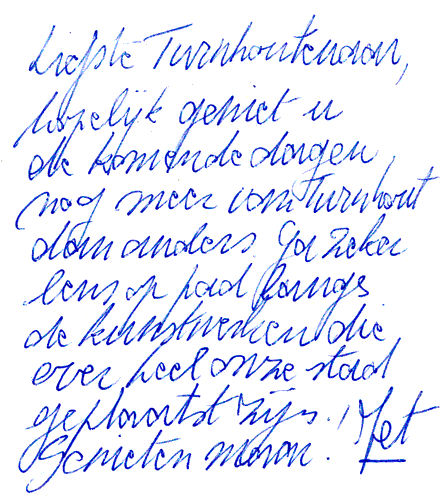 Liefste Turnhoutenaren,
hopelijk geniet u
de komende dagen
nog meer van Turnhout
dan anders. Ga zeker
eens op pad langs
de kunstwerken die
over heel onze stad
geplaatst zijn.! Met
Genieten maar.